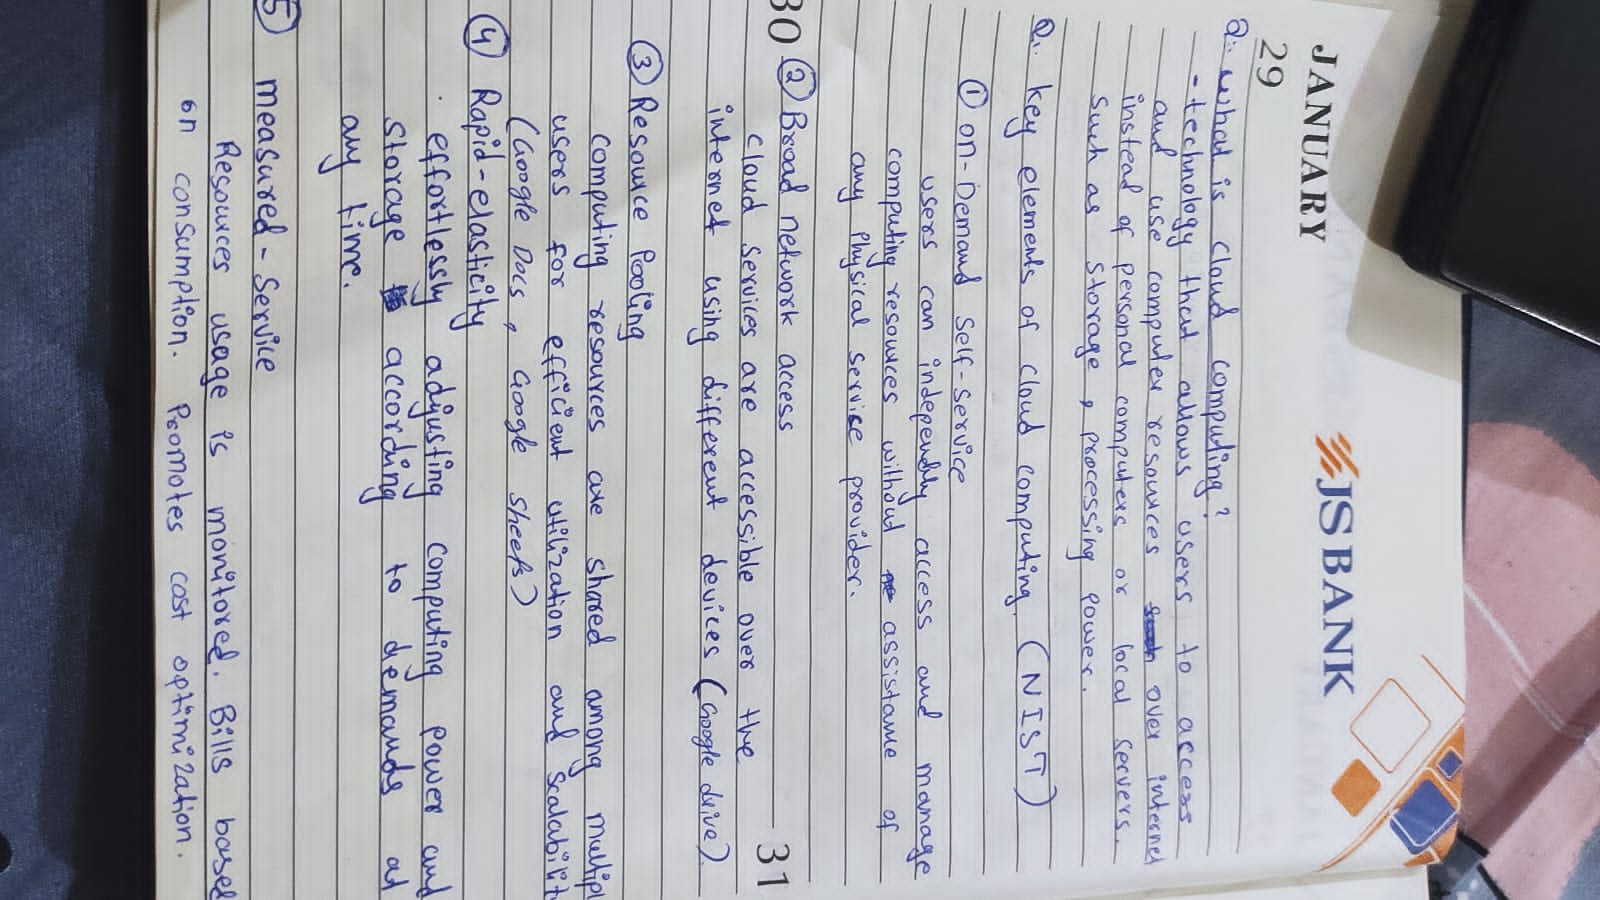 JANUARY JS BANK
29
Q:- What is cloud computing?
- technology that allows users to access
and use computer resources over internet
instead of personal computers or local servers.
such as storage, processing power.
Q:- Key elements of cloud computing (NIST)
① on-Demand Self-Service
users can independly access and manage
computing resources without assistance of
any physical service provider.
30 31
② Broad network access
cloud services are accessible over the
internet using different devices (Google drive)
③ Resource Pooling
computing resources are shared among multipl
users for efficient utilization and scalabilit
(Google Docs, Google sheets)
④ Rapid-elasticity
effortlessly adjusting computing power and
storage according to demands at
any time.
⑤ measured-Service
Resources usage is monitored. Bills based
on consumption. Promotes cost optimization.